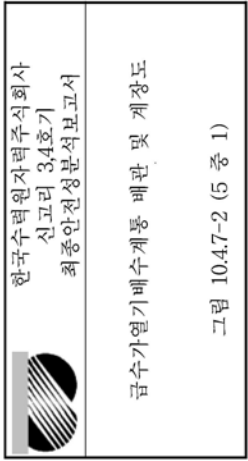 한국수력원자력주식회사
신고리 3,4호기
최종안전성분석보고서
급수가열기배수계통 배관 및 계장도
그림 10.4.7-2 (5 중 1)